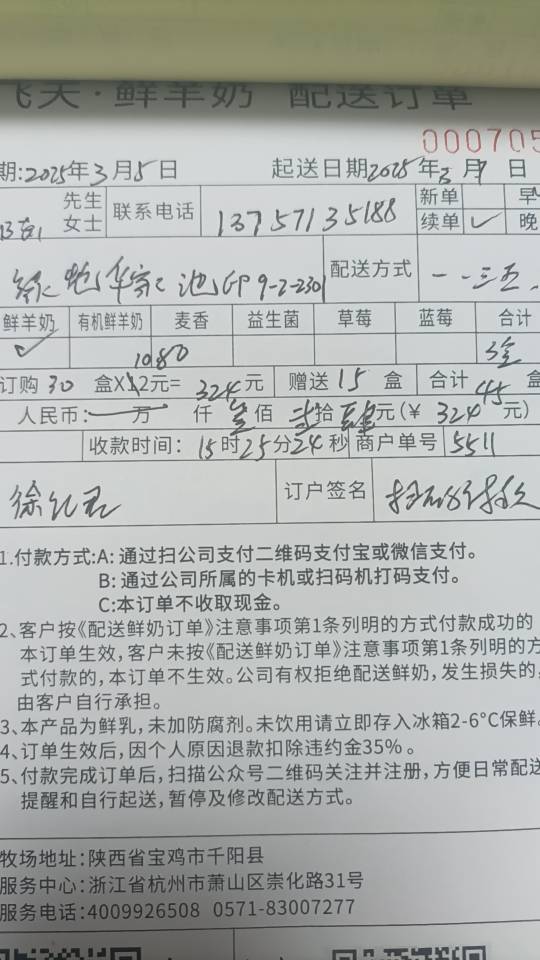 飞天·鲜羊奶 配送订单
000705
期:2025年3月5日 起送日期2025年3月7日
先生 女士 联系电话 13757135188 新单 续单✓ 早 晚
池GP9-2-2301 配送方式 一、三五
鲜羊奶 有机鲜羊奶 麦香 益生菌 草莓 蓝莓 合计
✓ 10.80
订购30盒X12元=324元 赠送15盒 合计45盒
人民币: 万 仟叁佰贰拾肆元(¥324元)
收款时间: 15时25分24秒 商户单号 5511
徐 订户签名 扫码付款
1.付款方式:A: 通过扫公司支付二维码支付宝或微信支付。
B: 通过公司所属的卡机或扫码机打码支付。
C:本订单不收取现金。
2、客户按《配送鲜奶订单》注意事项第1条列明的方式付款成功的
本订单生效,客户未按《配送鲜奶订单》注意事项第1条列明的方
式付款的,本订单不生效。公司有权拒绝配送鲜奶,发生损失的,
由客户自行承担。
3、本产品为鲜乳,未加防腐剂。未饮用请立即存入冰箱2-6°C保鲜。
4、订单生效后,因个人原因退款扣除违约金35%。
5、付款完成订单后,扫描公众号二维码关注并注册,方便日常配送
提醒和自行起送,暂停及修改配送方式。
牧场地址:陕西省宝鸡市千阳县
服务中心:浙江省杭州市萧山区崇化路31号
服务电话:4009926508 0571-83007277